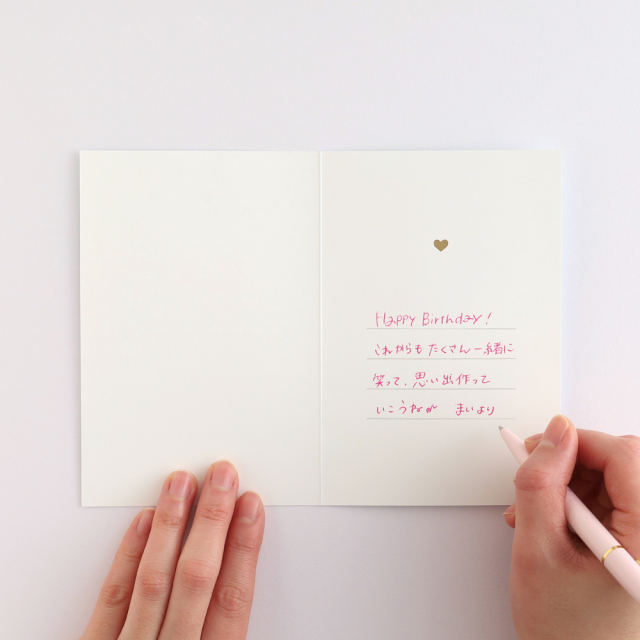 Happy Birthday!
これからもたくさん一緒に
笑って、思い出作って
いこうねっ まいより